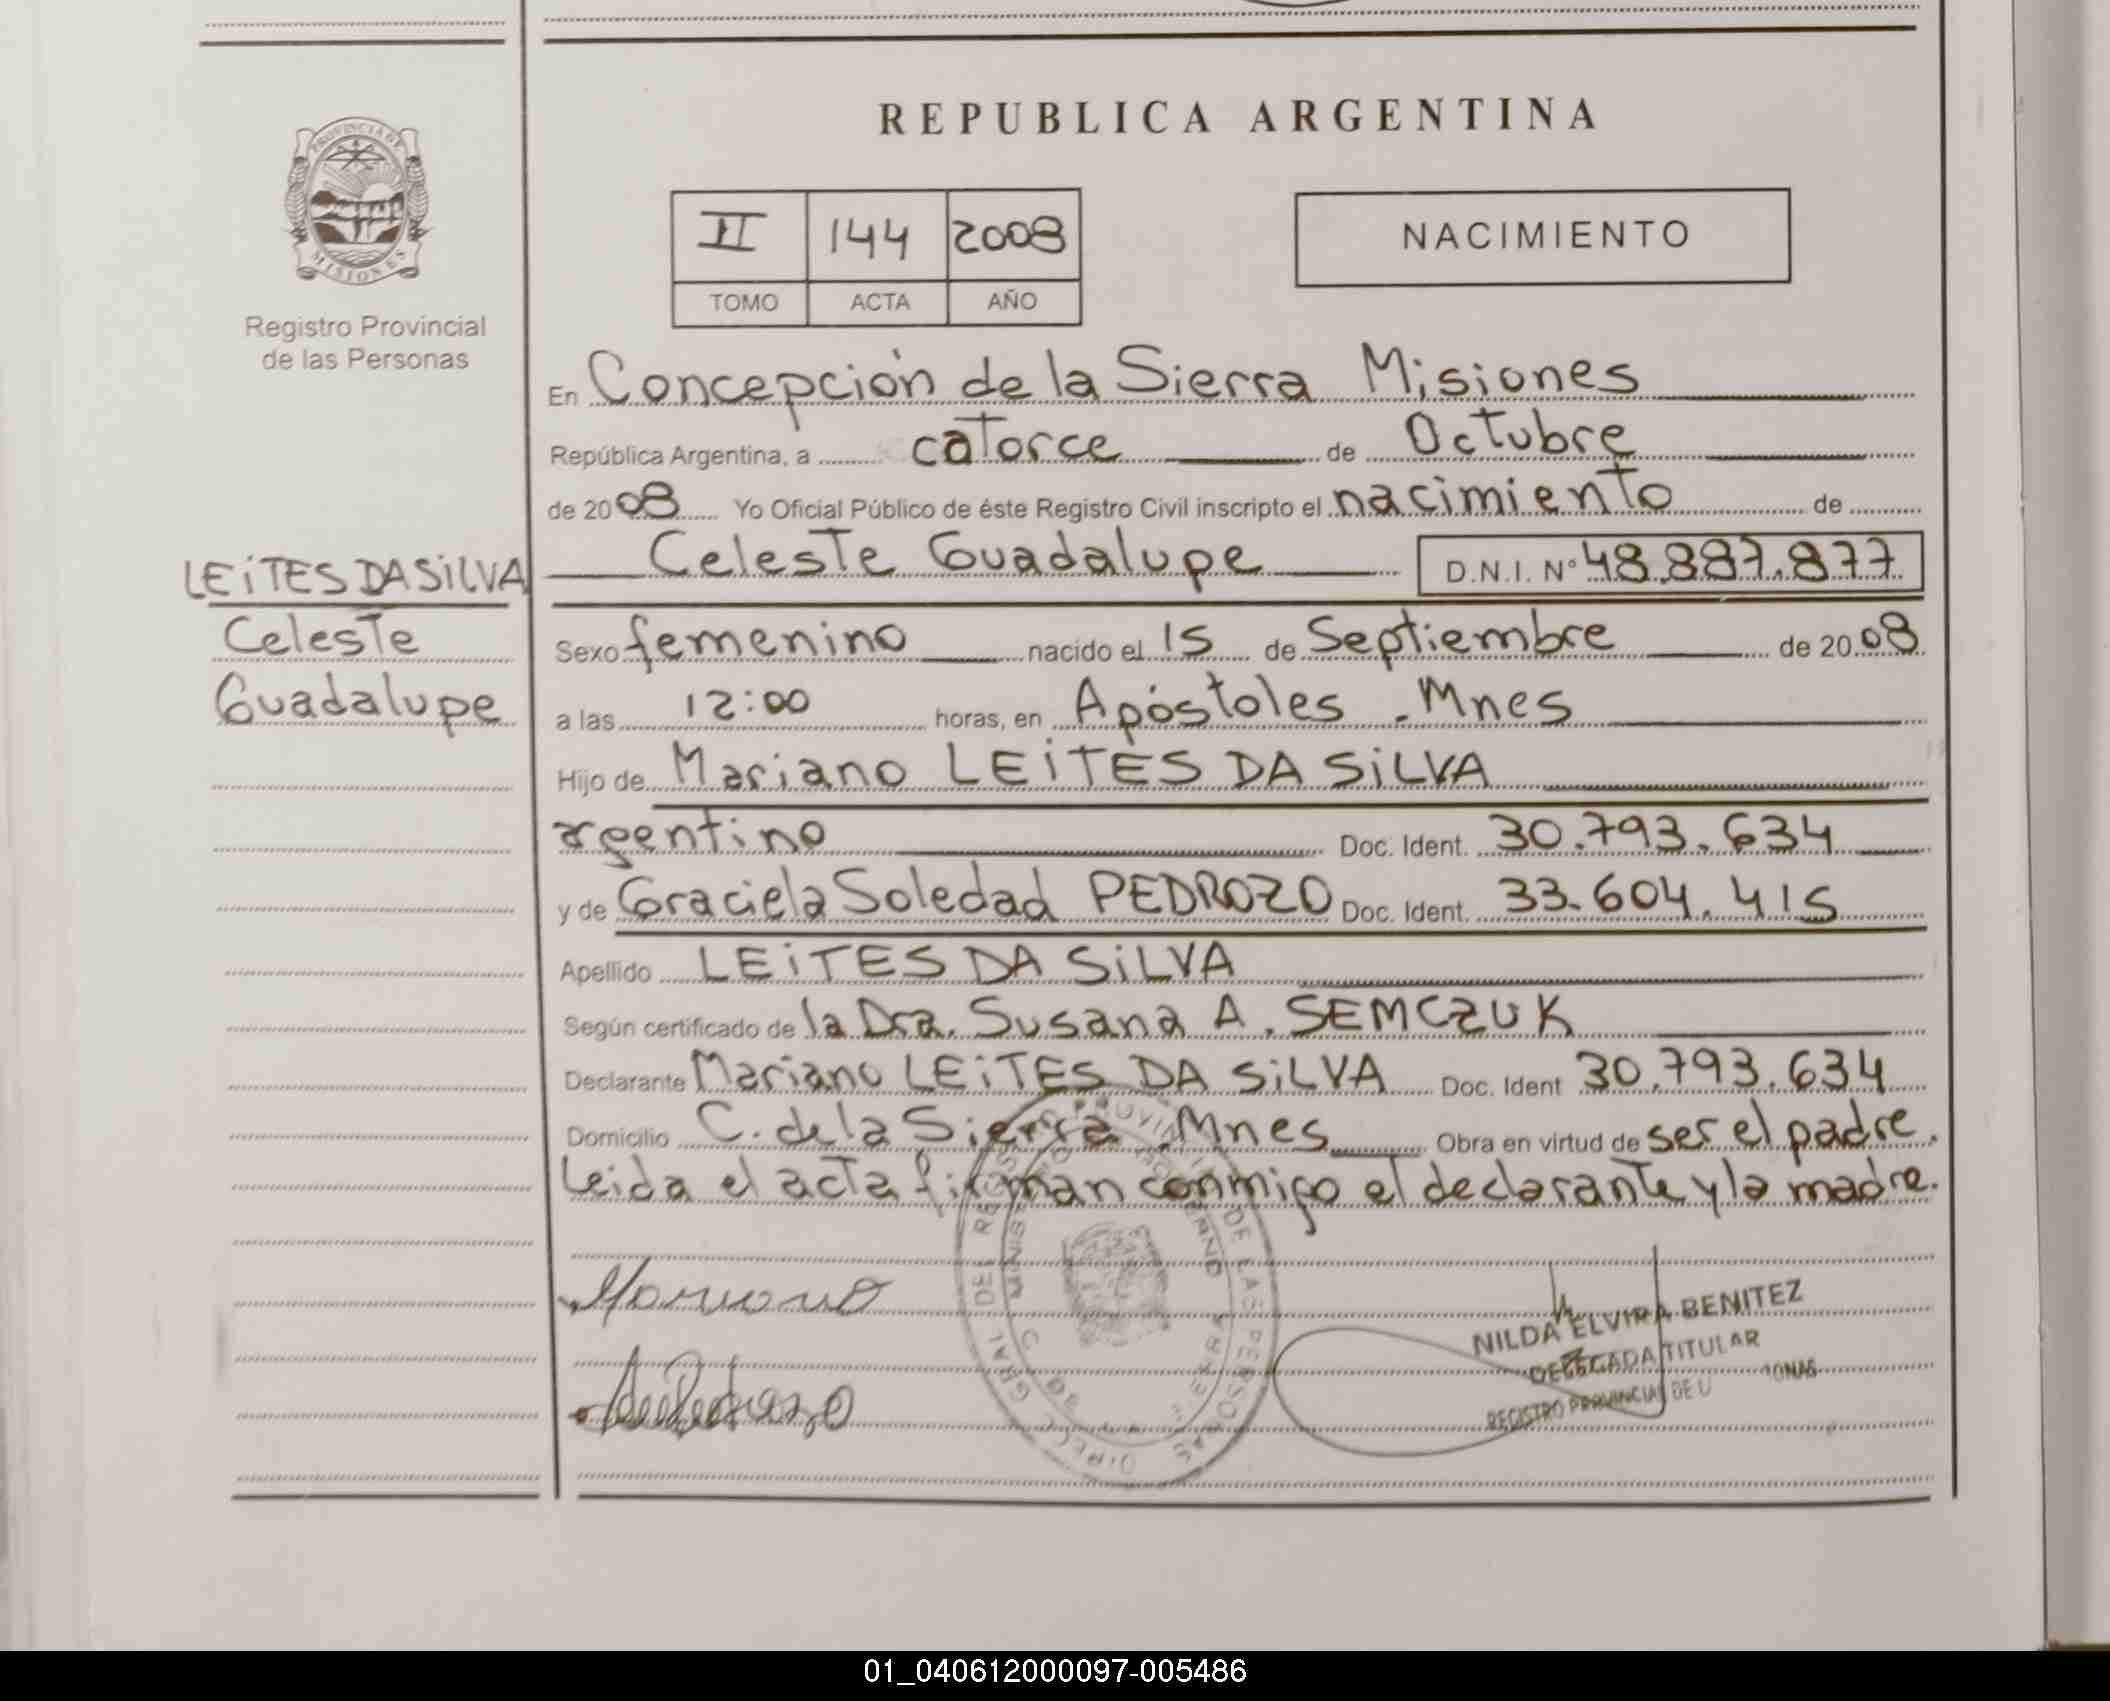 REPUBLICA ARGENTINA
PROVINCIA DE
MISIONES
Registro Provincial
de las Personas
II 144 2008
TOMO ACTA AÑO
NACIMIENTO
En Concepción de la Sierra Misiones
República Argentina, a catorce de Octubre
de 2008 Yo Oficial Público de éste Registro Civil inscripto el nacimiento de
Celeste Guadalupe D.N.I. N° 48.887.877
LEiTES DA SiLVA
Celeste
Guadalupe
Sexo femenino nacido el 15 de Septiembre de 2008
a las 12:00 horas, en Apóstoles . Mnes
Hijo de Mariano LEiTES DA SiLVA
argentino Doc. Ident. 30.793.634
y de Graciela Soledad PEDROZO Doc. Ident. 33.604.415
Apellido LEiTES DA SiLVA
Según certificado de la Dra. Susana A. SEMCZUK
Declarante Mariano LEiTES DA SiLVA Doc. Ident 30.793.634
Domicilio C. de la Sierra . Mnes Obra en virtud de ser el padre.
Leida el acta firman conmigo el declarante y la madre.
Mariano
Pedrozo
NILDA ELVIRA BENITEZ
DELEGADA TITULAR
REGISTRO PROVINCIAL DE
01_040612000097-005486